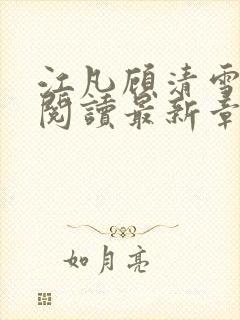 江凡顾清雪
閱讀最新章
如月亮